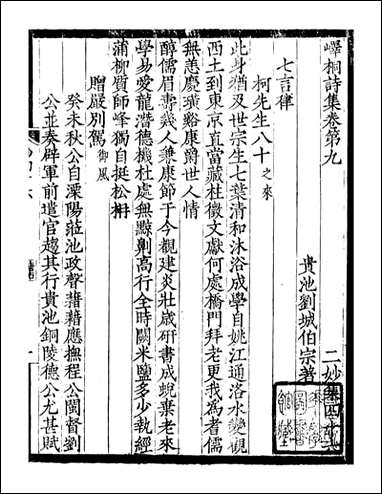 嶧桐詩集卷第九
二妙集
貴池劉城伯宗著
七言律
柯先生八十 之來
此身猶及世宗生七葉清和沐浴成學自姚江通洛水變觀
西土到東京直當藏杜徵文獻何處橋門拜老更我爲耆儒
無恙慶璜谿康爵世人情
醇儒眉壽幾人兼康節于今觀建炎壯歲研書成蛻葉老來
學易愛龍潛德機杜處無黥劓高行全時闕米鹽多少執經
蒲柳質師峰獨自挺松枏
贈嚴別駕 御風
癸未秋公自溧陽蒞池政聲藉藉應撫程公閩督劉
公並奏辟軍前遣官趨其行貴池銅陵德公尤甚賦